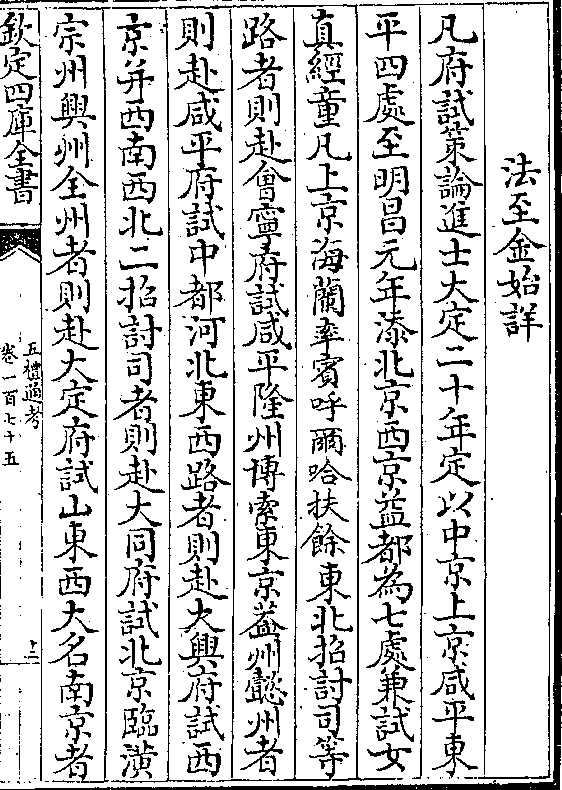 法至金始詳
凡府試策論進士大定二十年定以中京上京咸平東
平四處至明昌元年添北京西京益都為七處兼試女
真經童凡上京海蘭率賓呼爾哈扶餘東北招討司等
路者則赴會寧府試咸平隆州博索東京蓋州懿州者
則赴咸平府試中都河北東西路者則赴大興府試西
京并西南西北二招討司者則赴大同府試北京臨潢
宗州興州全州者則赴大定府試山東西大名南京者
欽定四庫全書
五禮通考
卷一百七十五
十二